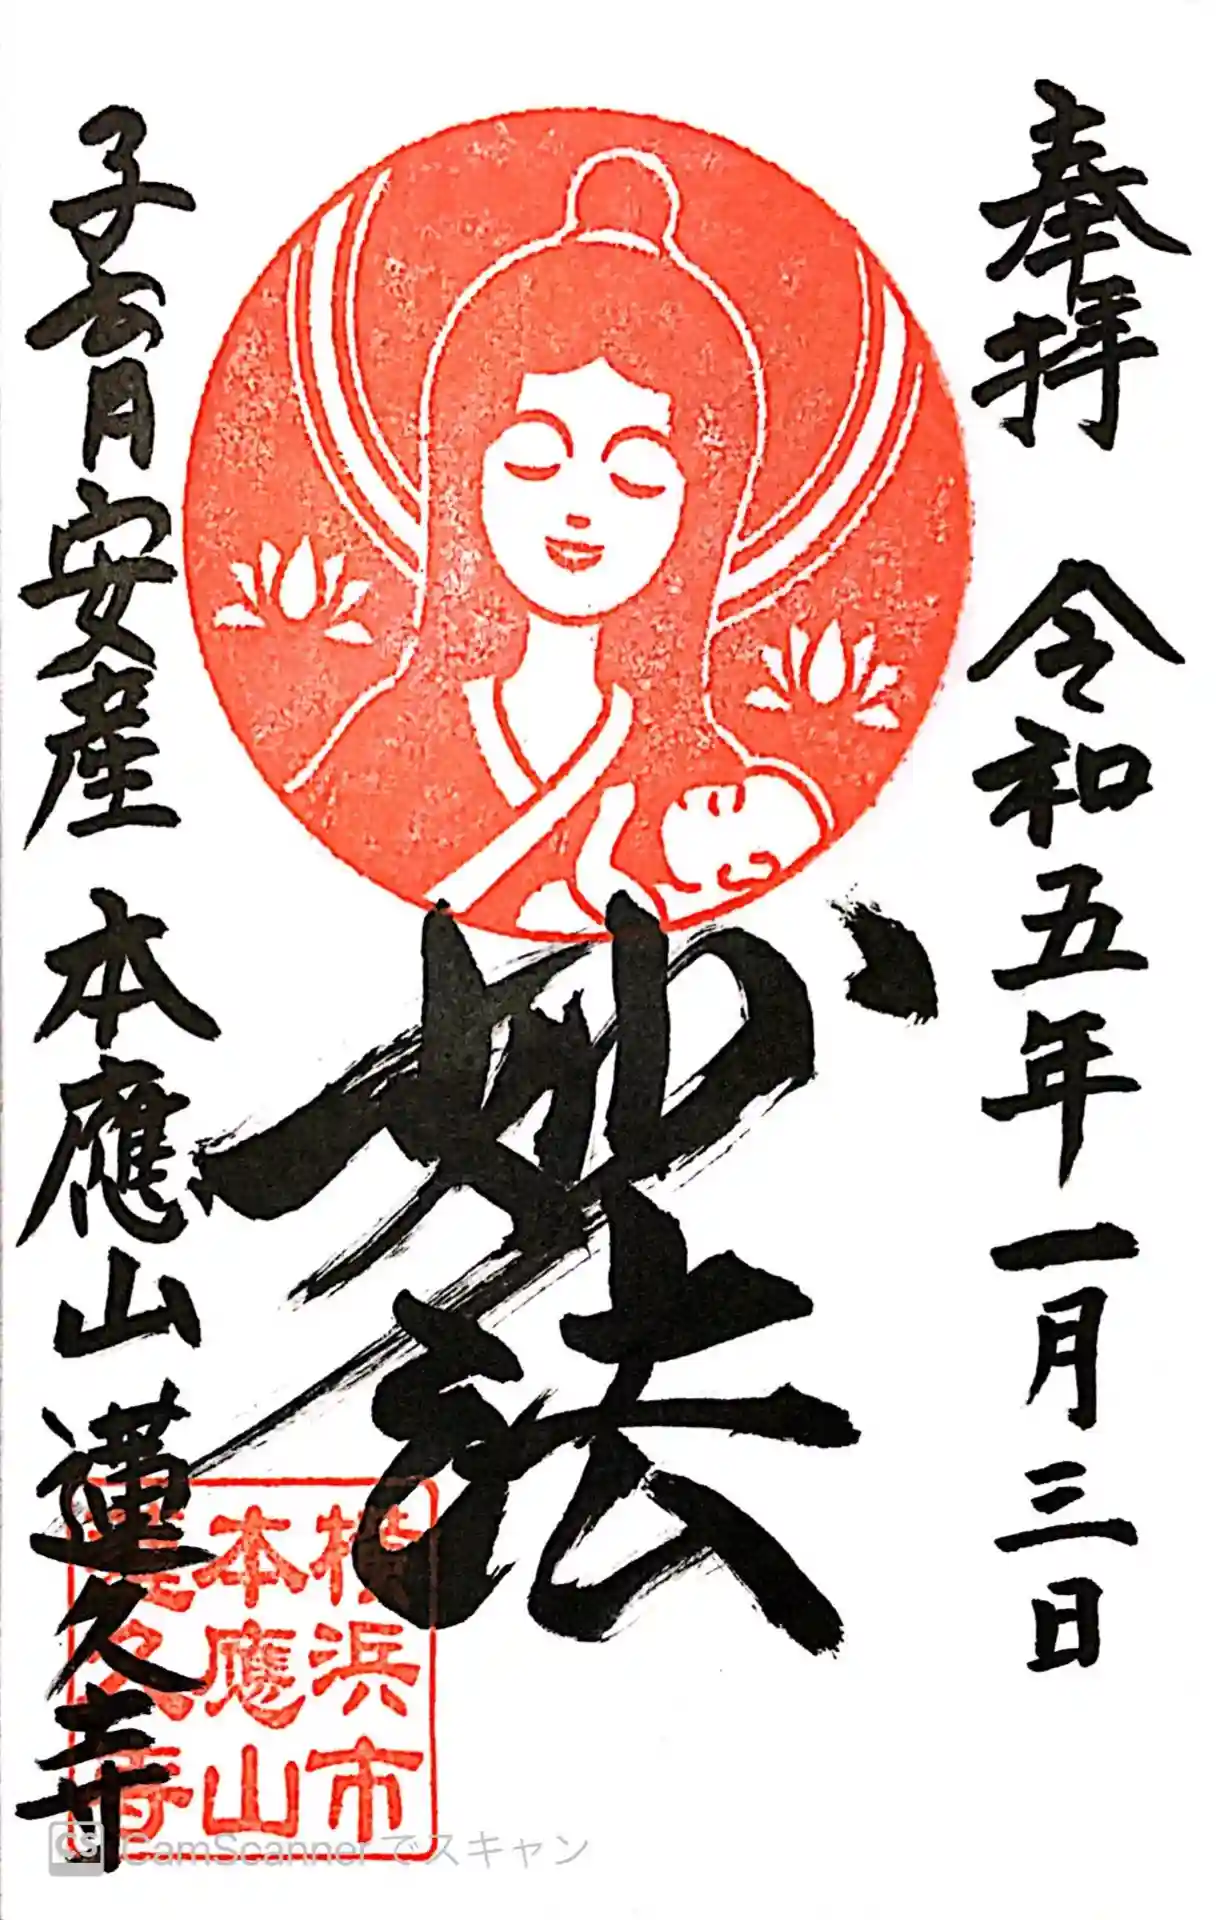 奉拝 令和五年 一月三日
妙法
子育安産 本應山 蓮久寺
横浜市
本應山
蓮久寺
CS CamScanner でスキャン